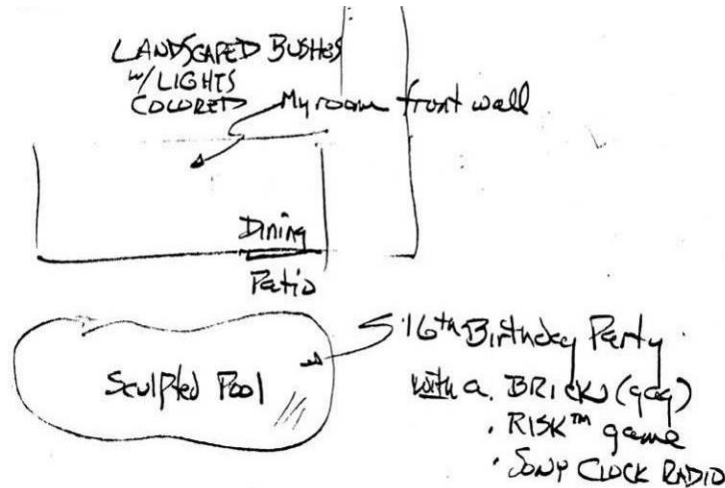 LANDSCAPED BUSHES
w/LIGHTS
COLORED
My room front wall
Dining
Patio
Sculpted Pool
16th Birthday Party
with a. BRICK (gag)
· RISK™ game
· SONY CLOCK RADIO